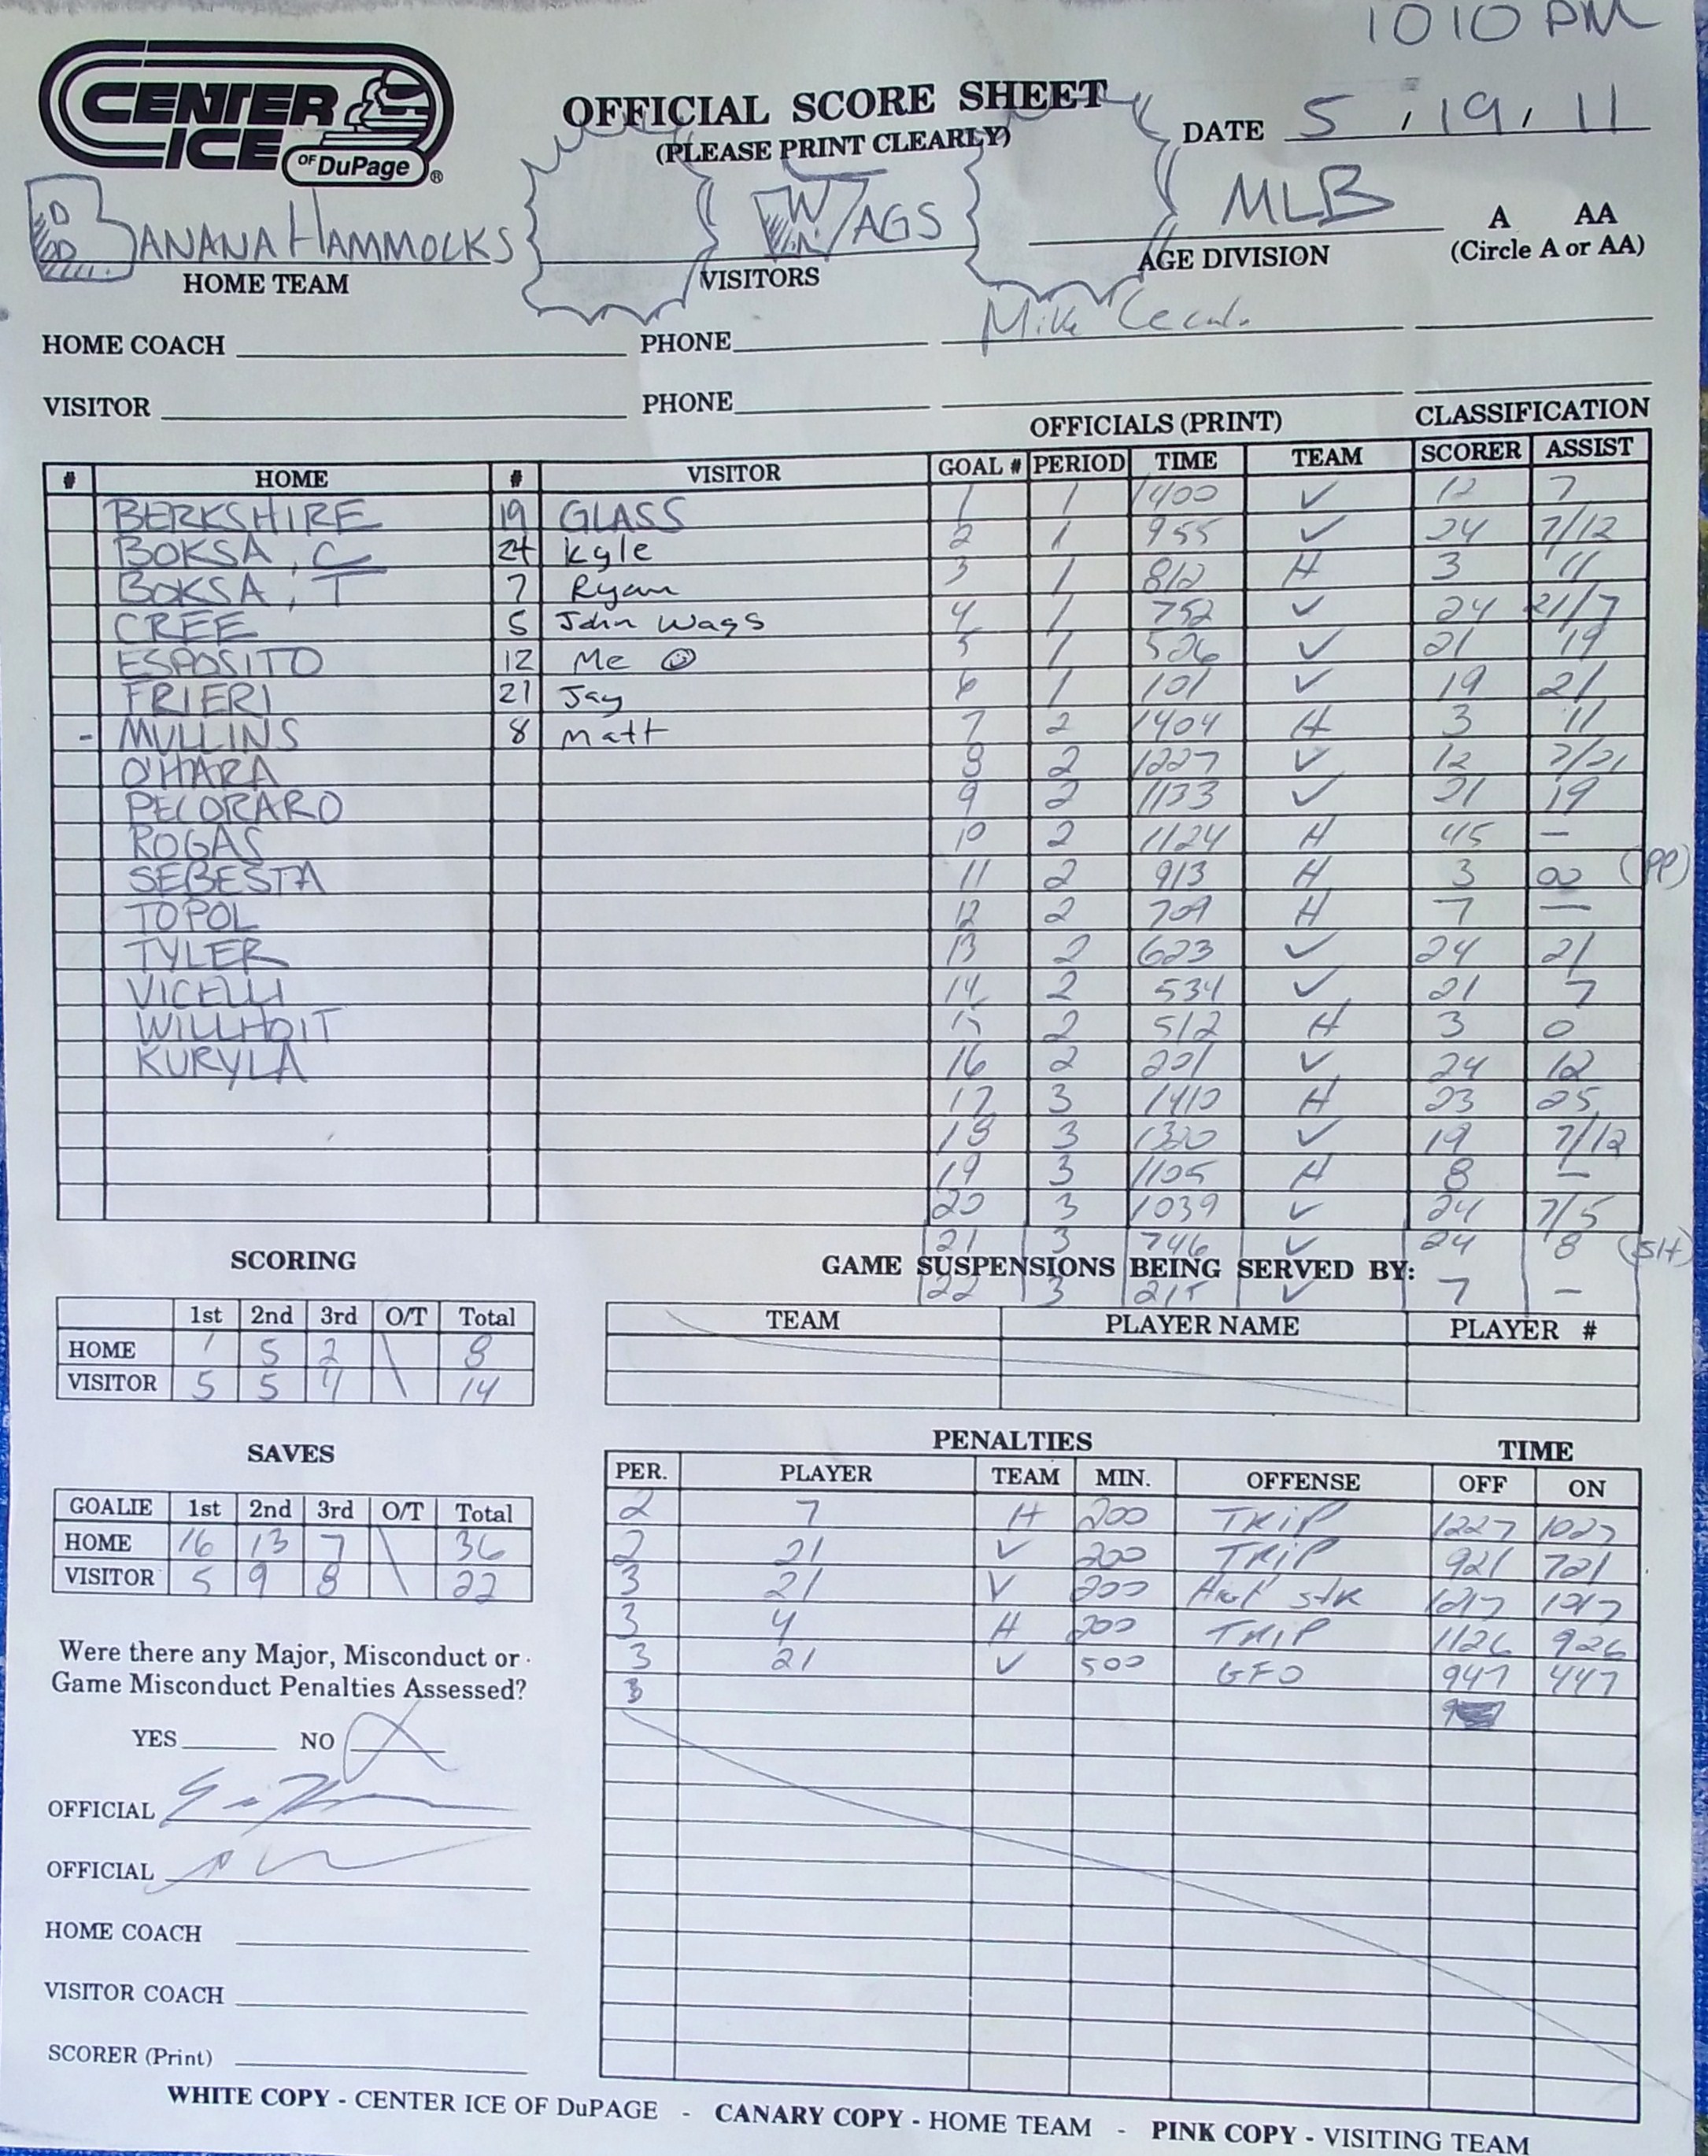 1010 PM
CENTER
ICE OF DuPage ®
OFFICIAL SCORE SHEET
(PLEASE PRINT CLEARLY)
DATE 5 , 19 , 11
BANANA HAMMOCKS WAGS MLB A AA
HOME TEAM VISITORS AGE DIVISION (Circle A or AA)
Mike
HOME COACH PHONE
VISITOR PHONE
OFFICIALS (PRINT) CLASSIFICATION
# HOME # VISITOR GOAL # PERIOD TIME TEAM SCORER ASSIST
1 1 1400 V 12 7
BERKSHIRE 19 GLASS 2 1 955 V 24 7/12
BOKSA, C 24 Kyle 3 1 812 H 3 11
BOKSA, T 7 Ryan 4 1 752 V 24 21/7
CREE 5 John Wags 5 1 526 V 21 19
ESPOSITO 12 Me ☺ 6 1 101 V 19 21
FRIERI 21 Jay 7 2 1404 H 3 11
- MULLINS 8 Matt 8 2 1227 V 12 7/21
O'HARA 9 2 1133 V 21 19
PECORARO 10 2 1124 H 45 —
ROGAS 11 2 913 H 3 00 (PP)
SEBESTA 12 2 709 H 7 —
TOPOL 13 2 623 V 24 21
TYLER 14 2 534 V 21 7
VICELLI 15 2 512 H 3 0
WILLHOIT 16 2 201 V 24 12
KURYLA 17 3 1410 H 23 25
18 3 1320 V 19 7/12
19 3 1105 H 8 —
20 3 1039 V 24 7/5
21 3 746 V 24 8 (SH)
SCORING GAME SUSPENSIONS BEING SERVED BY:
22 3 215 V 7 —
1st 2nd 3rd O/T Total TEAM PLAYER NAME PLAYER #
HOME 1 5 2 \ 8
VISITOR 5 5 4 \ 14
SAVES PENALTIES TIME
PER. PLAYER TEAM MIN. OFFENSE OFF ON
GOALIE 1st 2nd 3rd O/T Total
HOME 16 13 7 \ 36
VISITOR 5 9 8 \ 22
2 7 H 200 TRIP 1227 1027
2 21 V 200 TRIP 921 721
3 21 V 200 1217 1017
3 4 H 200 TRIP 1126 926
3 21 V 500 GFO 947 447
3
Were there any Major, Misconduct or
Game Misconduct Penalties Assessed?
YES NO X
OFFICIAL
OFFICIAL
HOME COACH
VISITOR COACH
SCORER (Print)
WHITE COPY - CENTER ICE OF DuPAGE - CANARY COPY - HOME TEAM - PINK COPY - VISITING TEAM